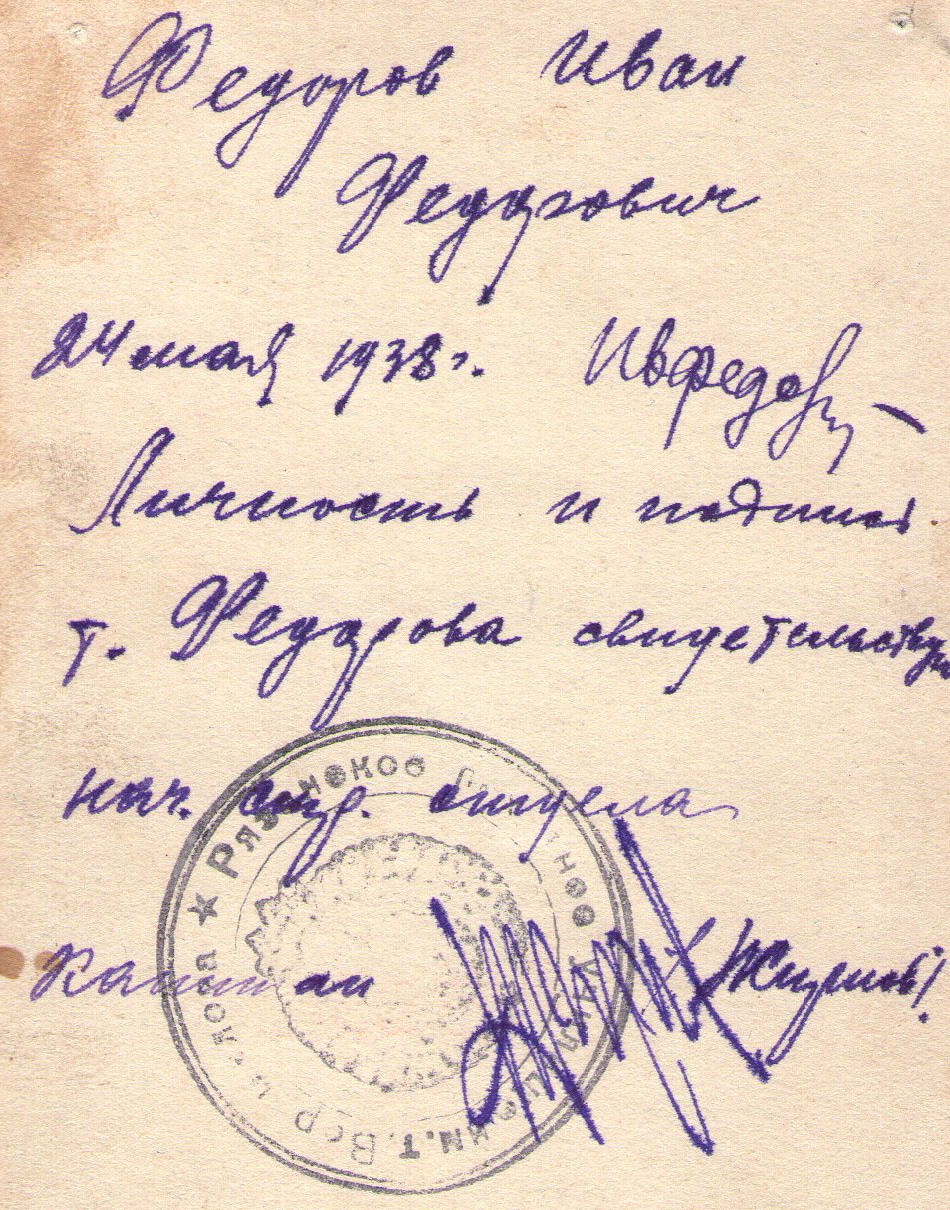 Федоров Иван
Федорович
24 мая 1938 г. ИвФедор
Личность и подпись
т. Федорова свидетельствую
нач. стр. отдела
капитан
Рязанское
им. т. Вор